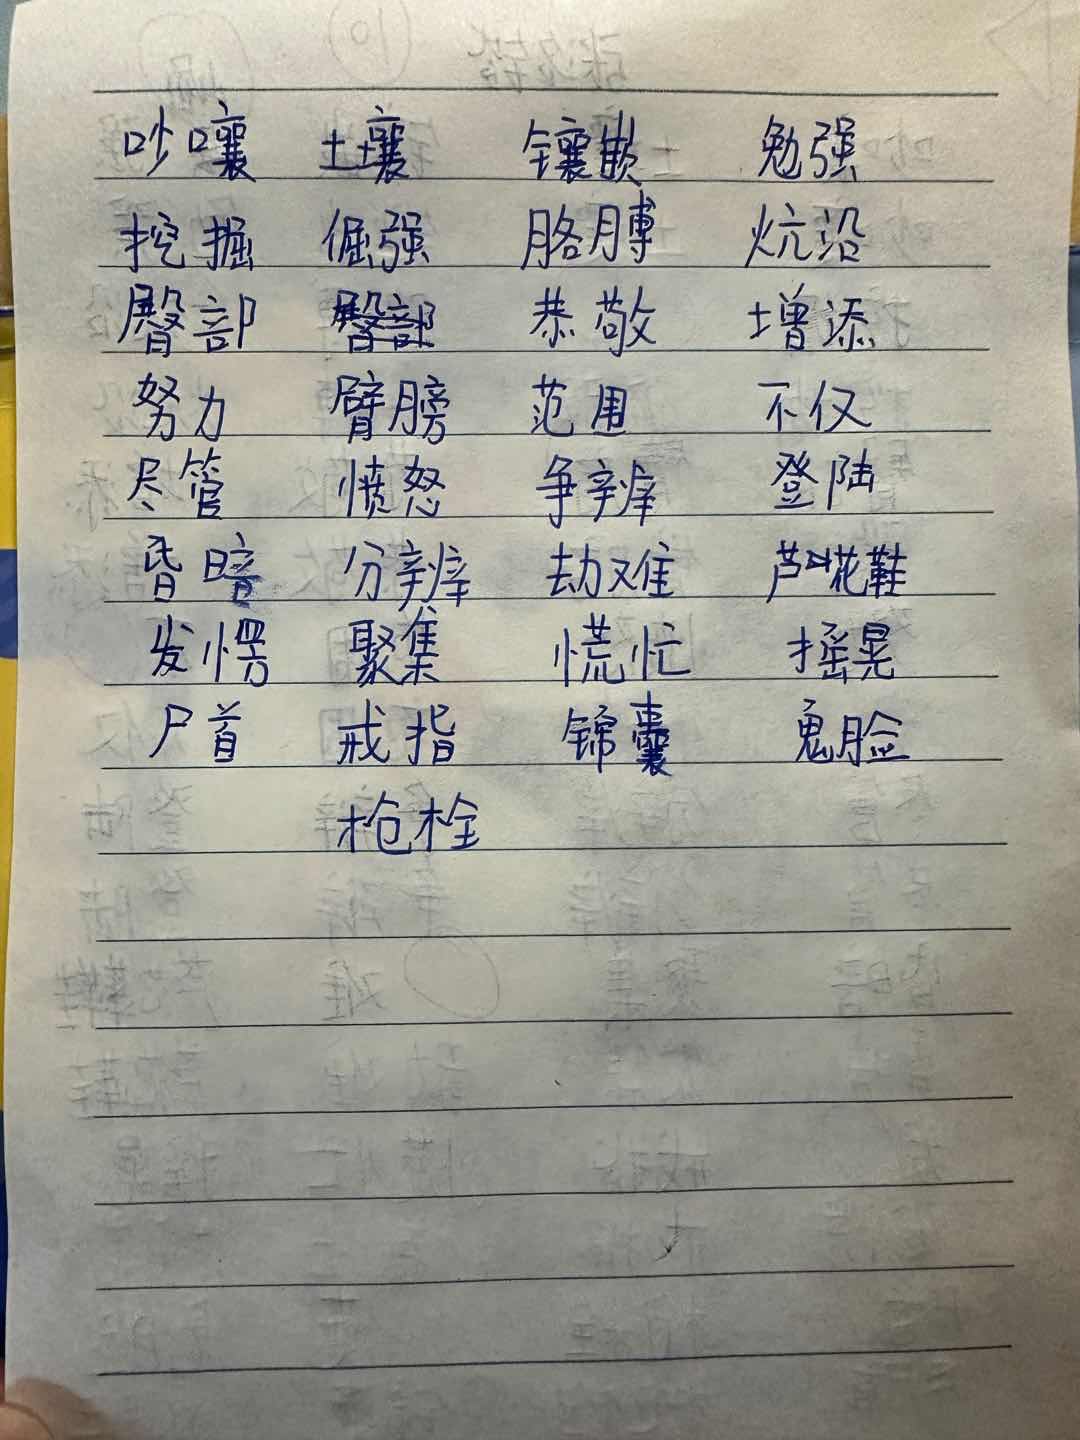 吵嚷 土壤 镶嵌 勉强
挖掘 倔强 胳膊 炕沿
臀部 恭敬 增添
努力 臂膀 范围 不仅
尽管 愤怒 争辨 登陆
昏暗 分辨 劫难 芦花鞋
发愣 聚集 慌忙 摇晃
尸首 戒指 锦囊 鬼脸
枪栓